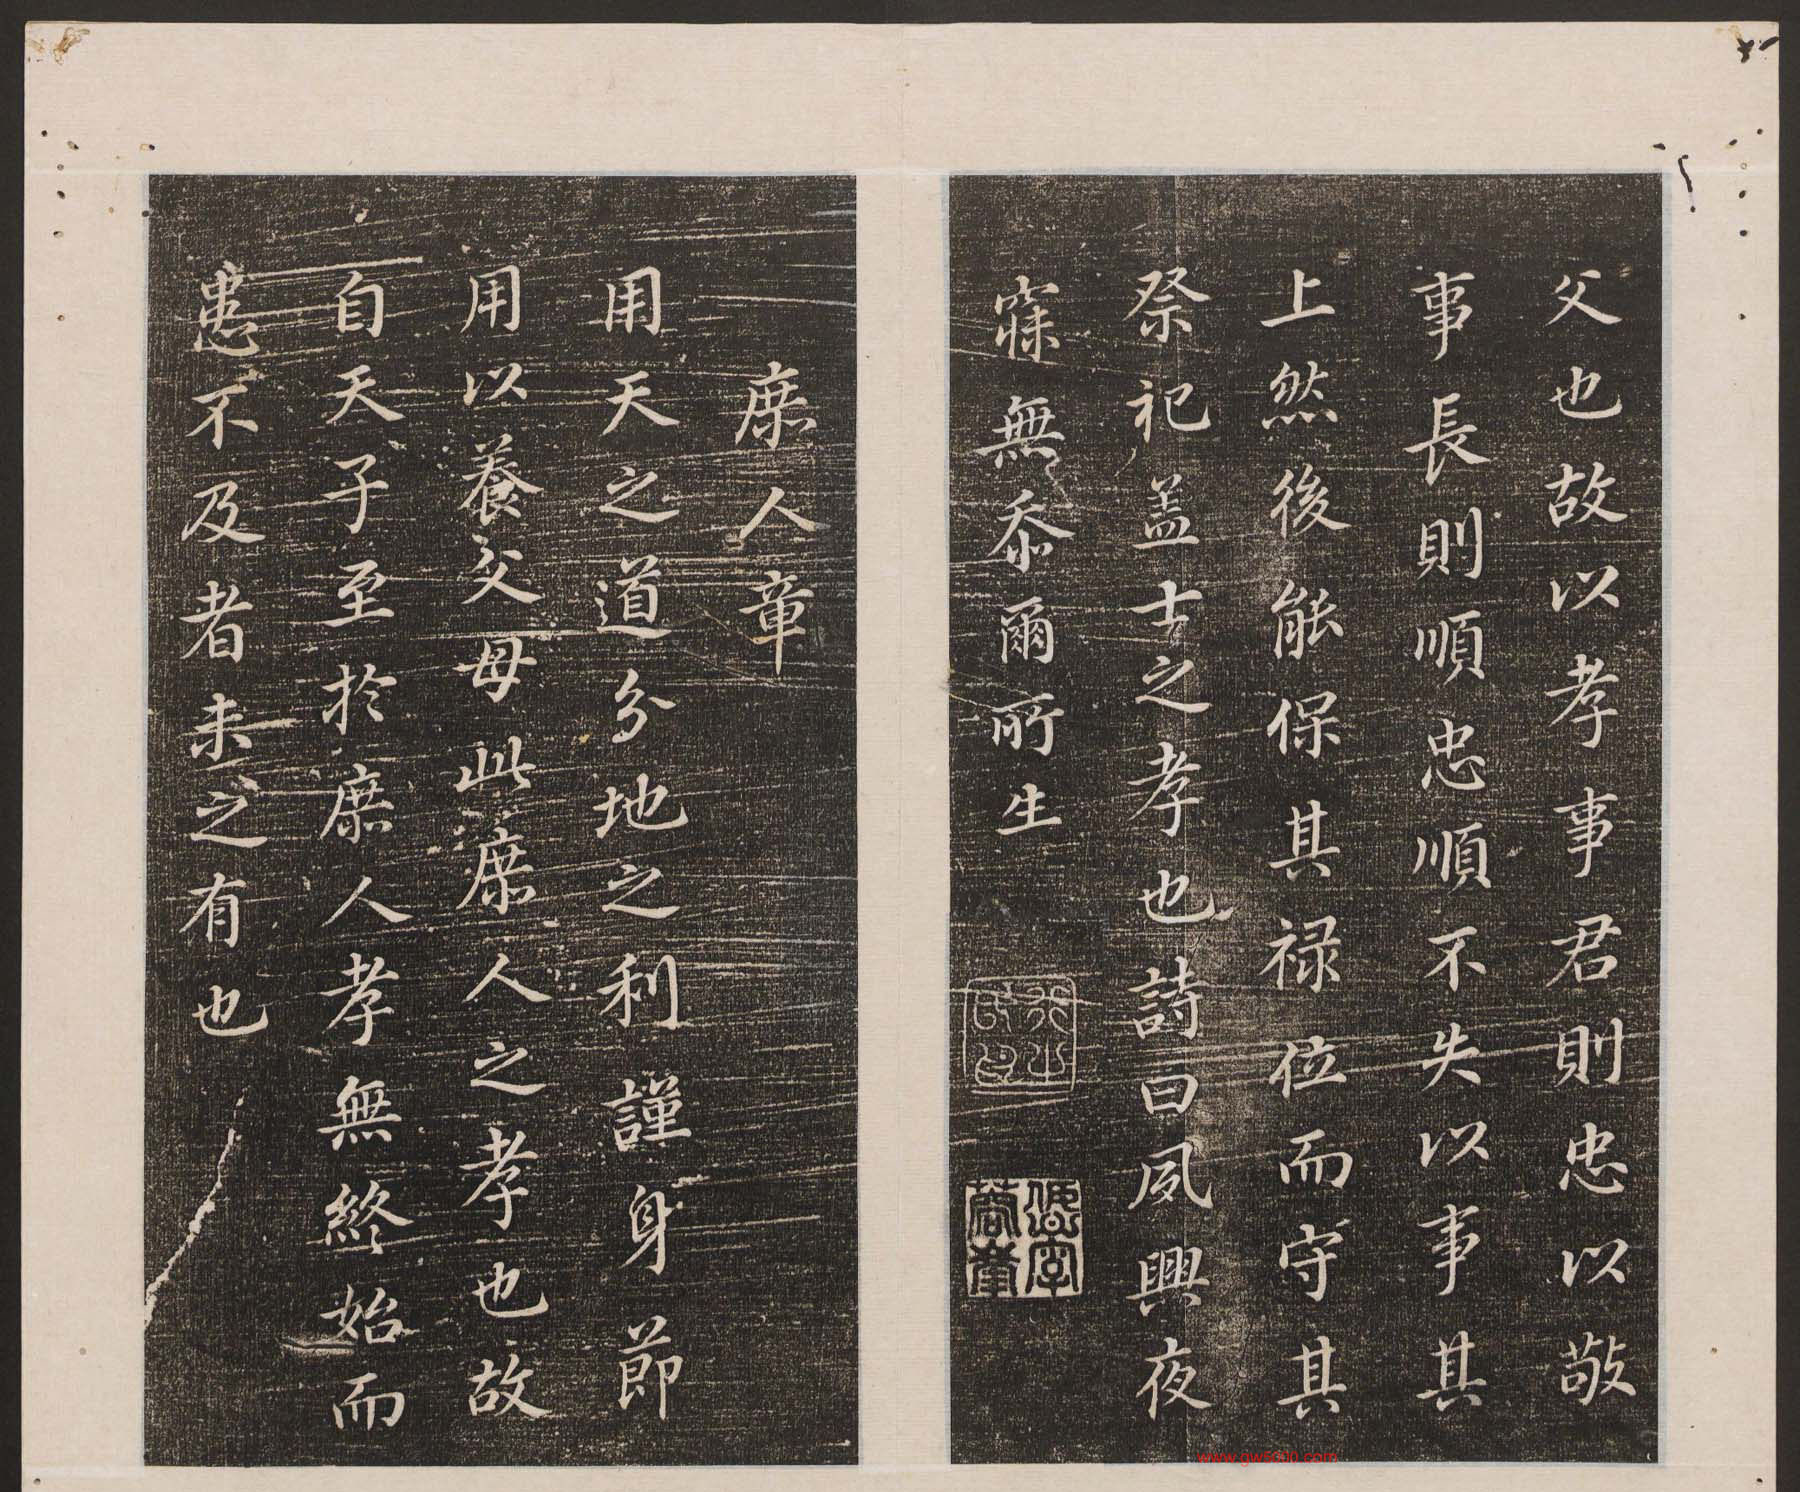 父也故以孝事君則忠以敬
事長則順忠順不失以事其
上然後能保其禄位而守其
祭祀盖士之孝也詩曰夙興夜
寐無忝爾所生
庶人章
用天之道分地之利謹身節
用以養父母此庶人之孝也故
自天子至於庶人孝無終始而
患不及者未之有也
www.gw5000.com